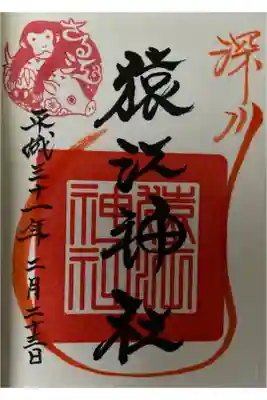 深川
猿江神社
猿江
神社
平成三十一年 二月二十三日
さるえ